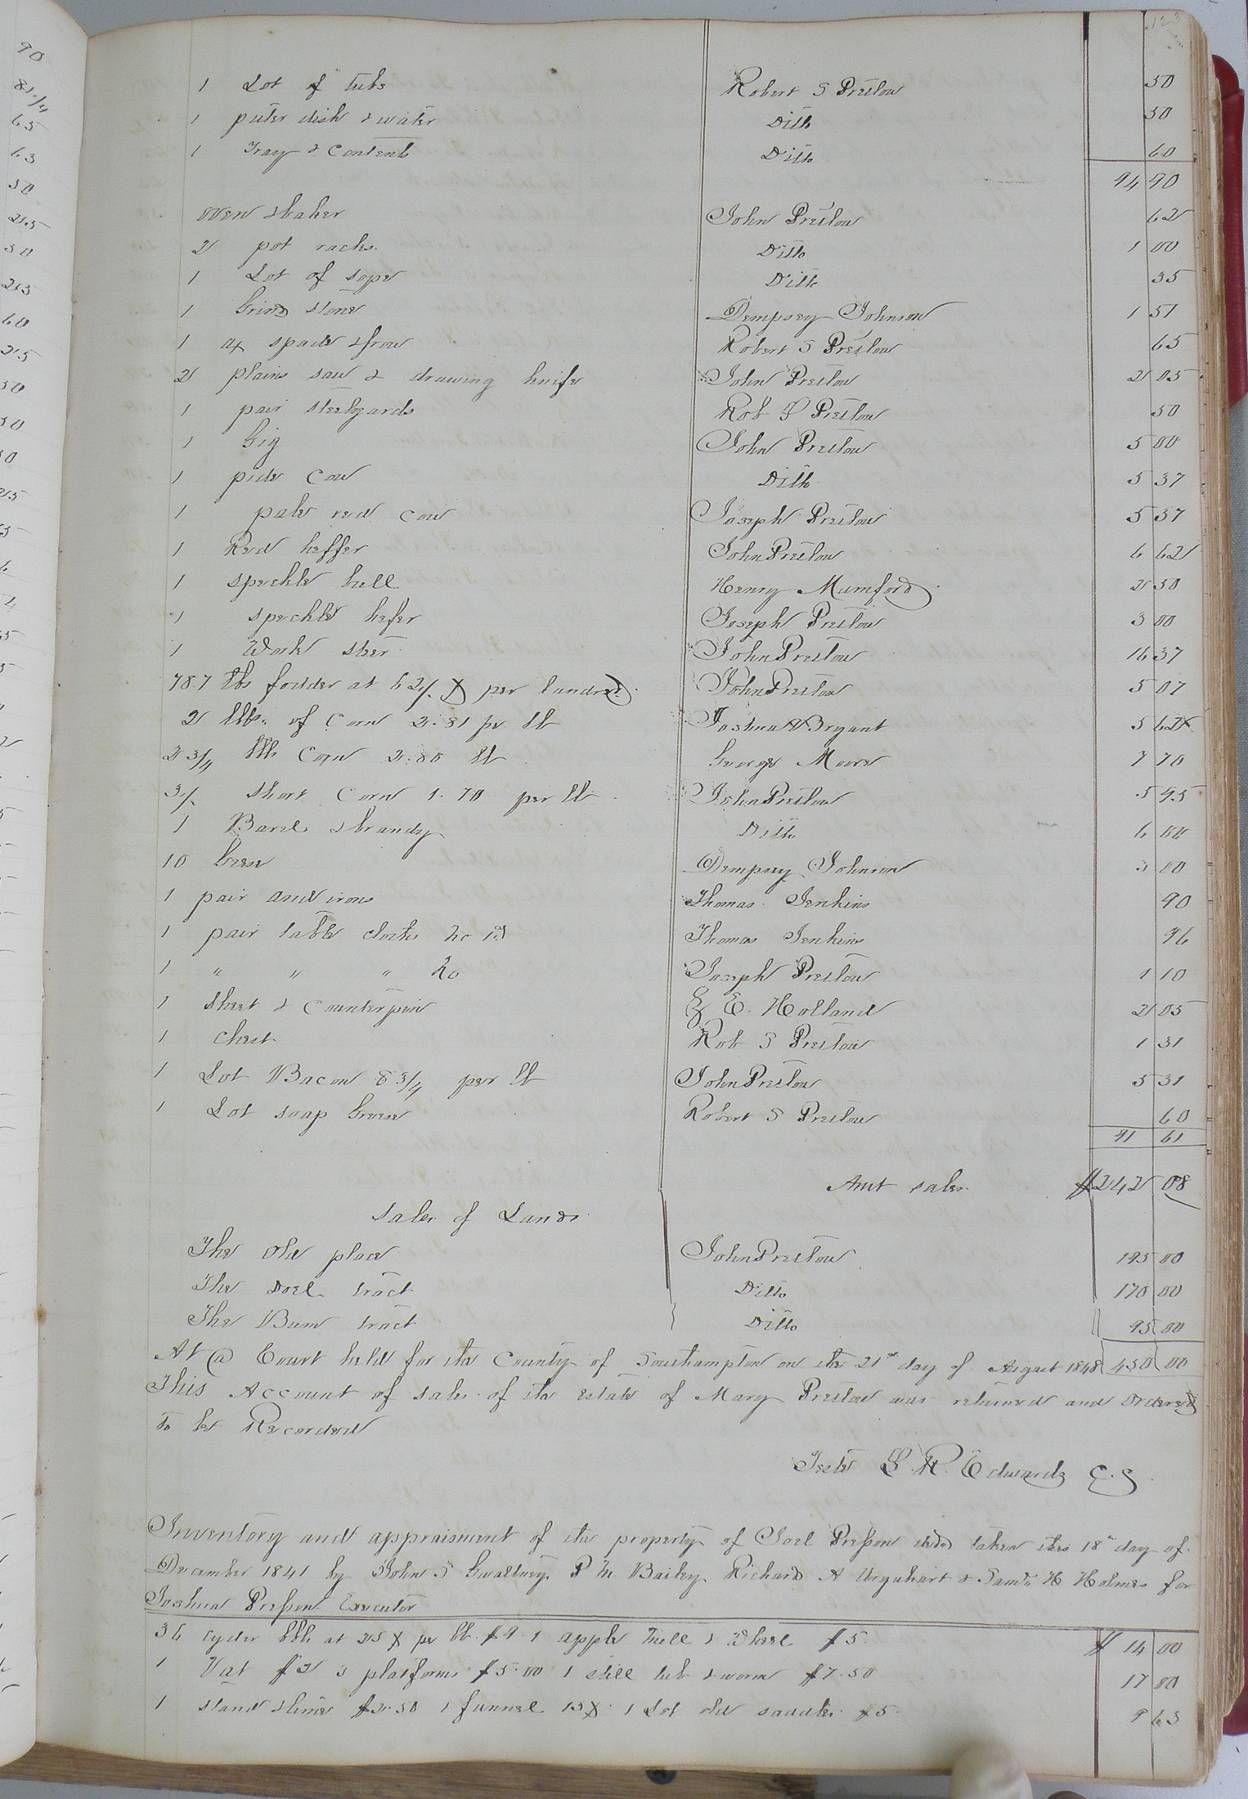 90
65
63
50
25
50
25
60
25
50
50
50
25
1 Lot of tubs Robert S Preslow 50
1 puter dish & water Ditto 50
1 Tray & Contents Ditto 60
94 90
oven & baker John Preslow 62
2 pot racks Ditto 1 00
1 Lot of sope Ditto 35
1 Grind stone Dempsey Johnson 1 51
1 ax spade & frow Robert S Preslow 65
2 plains saw & drawing knife John Preslow 2 05
1 pair stelyards Rob S Preslow 50
1 Gig John Preslow 5 00
1 pide Cow Ditto 5 37
1 pale red cow Joseph Preslow 5 37
1 Red heffer John Preslow 6 62
1 speckle bull Henry Mumford 2 50
1 speckle hefer Joseph Preslow 3 00
1 Work steer John Preslow 16 37
787 lbs fodder at 62/. per hundred John Preslow 5 07
2 bbls of Corn 2.81 pr bb Joshua Bryant 5 62
2 3/4 bbls Corn 2.80 bb George Moore 7 70
3/. Short Corn 1.70 per bb John Preslow 5 95
1 Barel & brandy Ditto 6 00
10 Geese Dempsey Johnson 3 00
1 pair andirons Thomas Jenkins 90
1 pair table cloths No 1 Thomas Jenkins 96
1 " " " No Joseph Preslow 1 10
1 Sheet & Counterpin E. Holland 2 05
1 Chest Rob S Preslow 1 31
1 Lot Bacon 8 3/4 per lb John Preslow 5 31
1 Lot soap Grease Robert S Preslow 60
91 61
Amt sales $242 08
Sales of Lands
The Old place John Preslow 195 00
The Doel tract Ditto 170 00
The Bum tract Ditto 95 00
At a Court held for the County of Southampton on the 21st day of August 1848 450 00
This Account of sales of the estate of Mary Preslow was returned and Ordered
to be Recorded
Teste L. R. Edwards C.S
Inventory and appraisment of the property of Joel Presson decd taken this 18th day of
December 1841 by John S Gwaltney, P M Bailey, Richard A Urquhart & Saml H Holmes for
Joshua Presson Executor
36 cyder bbls at 25 pr bb $9. 1 apple mill & Wheel $5 $ 14 00
1 Vat 3 platforms $5.00 1 still tub & worm $7.50 17 00
1 stand 1 funnel 13 1 Lot old saddles $5 9 63